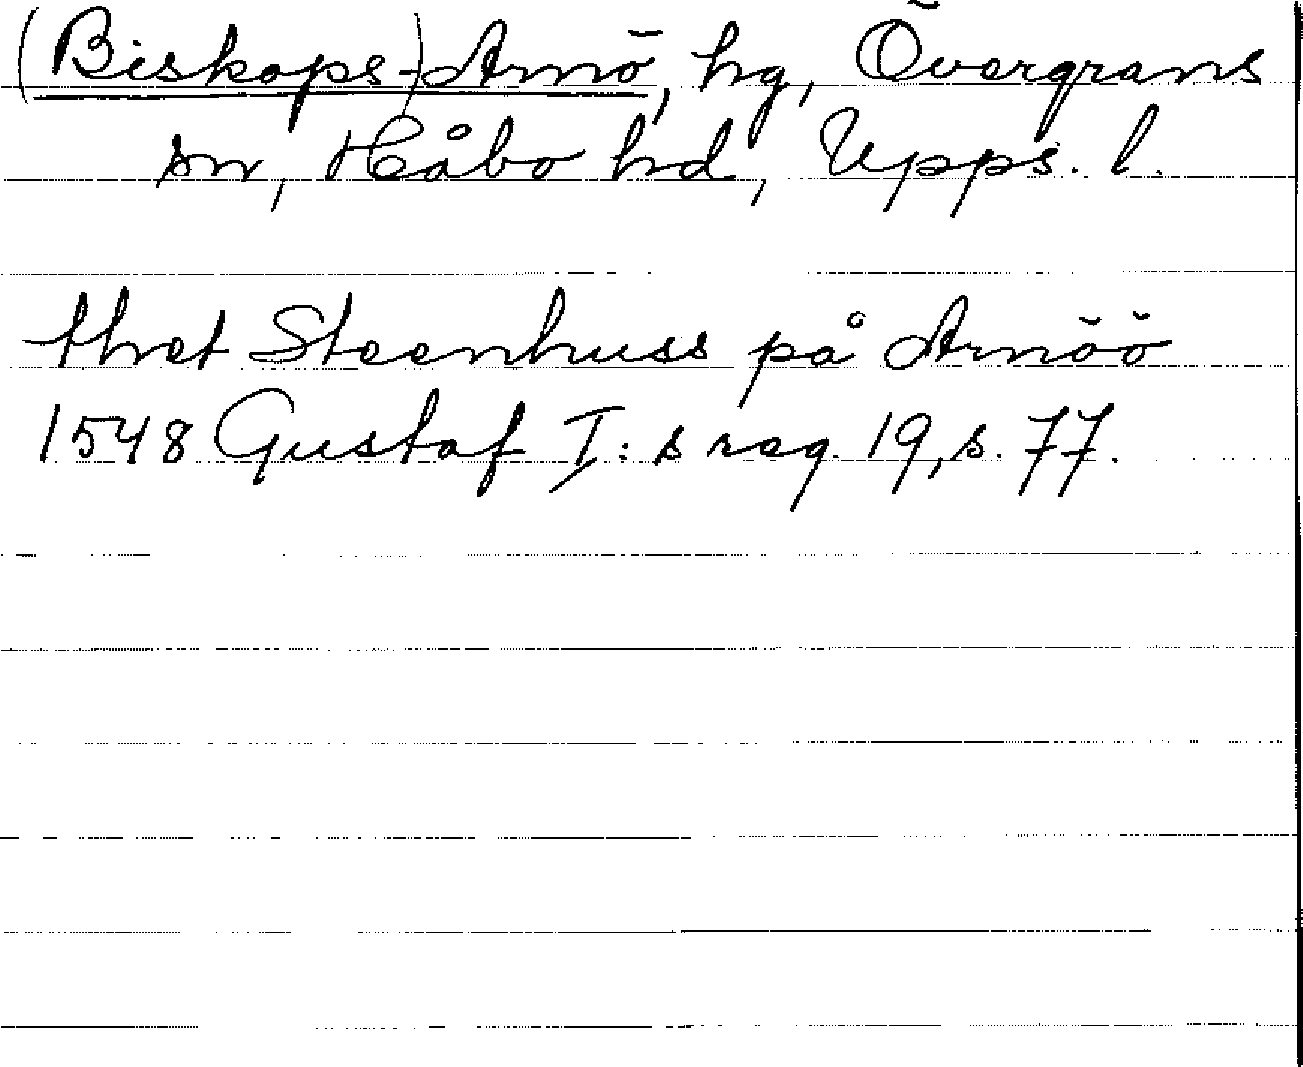 (Biskops-)Arnö, hg, Övergrans
sn, Håbo hd, Upps. l.
thet Steenhuss på Arnöö
1548 Gustaf I:s reg. 19, s. 77.